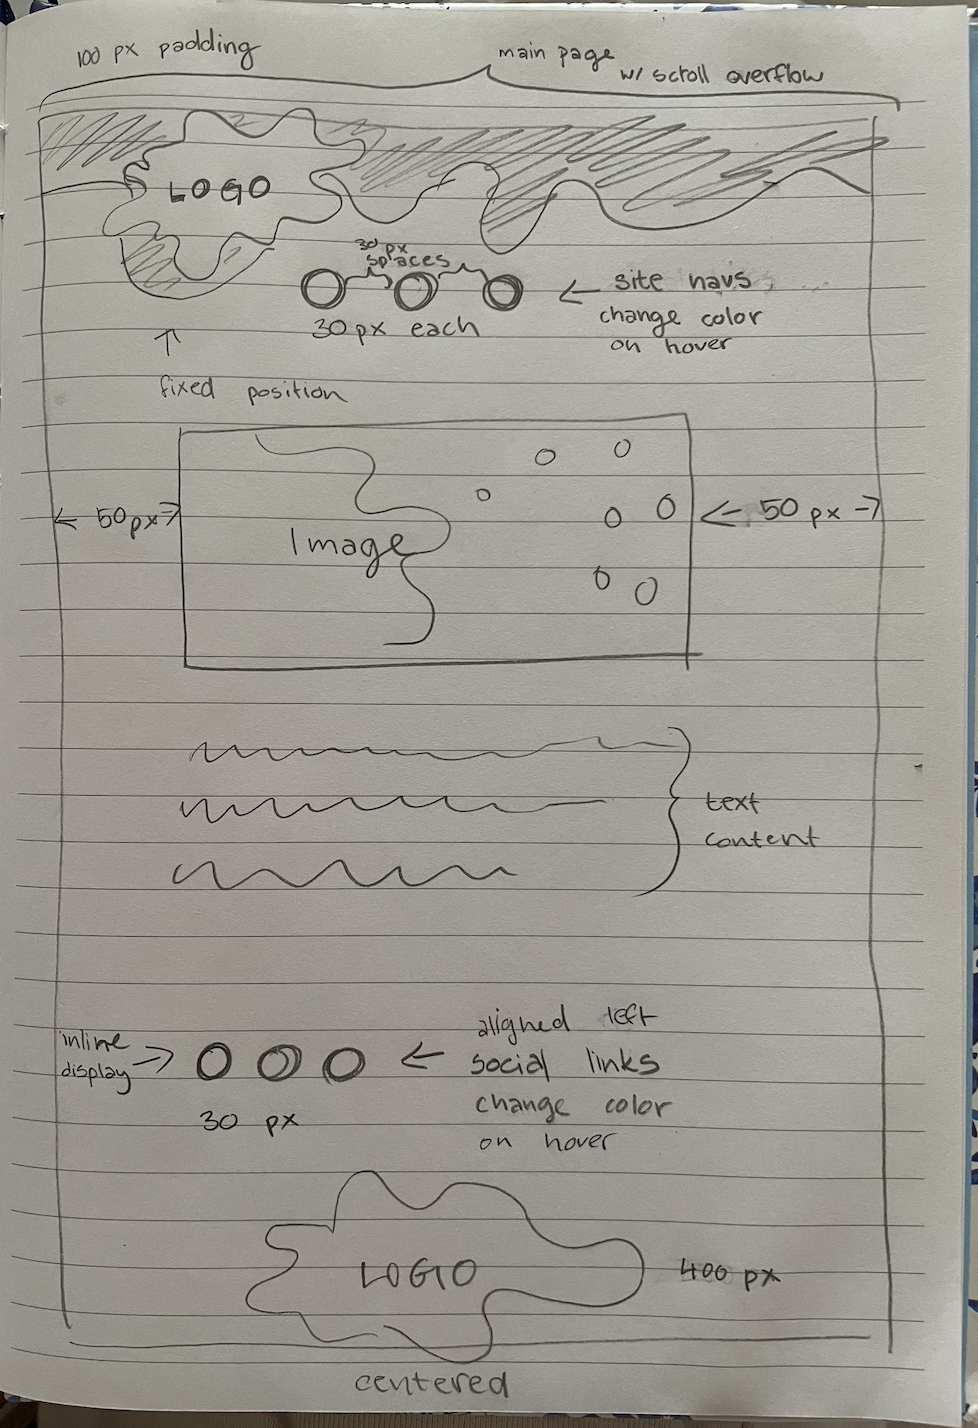 100 px padding
main page
w/ scroll overflow
LOGO
30 px
spaces
30 px each
site navs
change color
on hover
fixed position
50px
Image
50 px
text
content
inline
display
30 px
aligned left
social links
change color
on hover
LOGO
400 px
centered